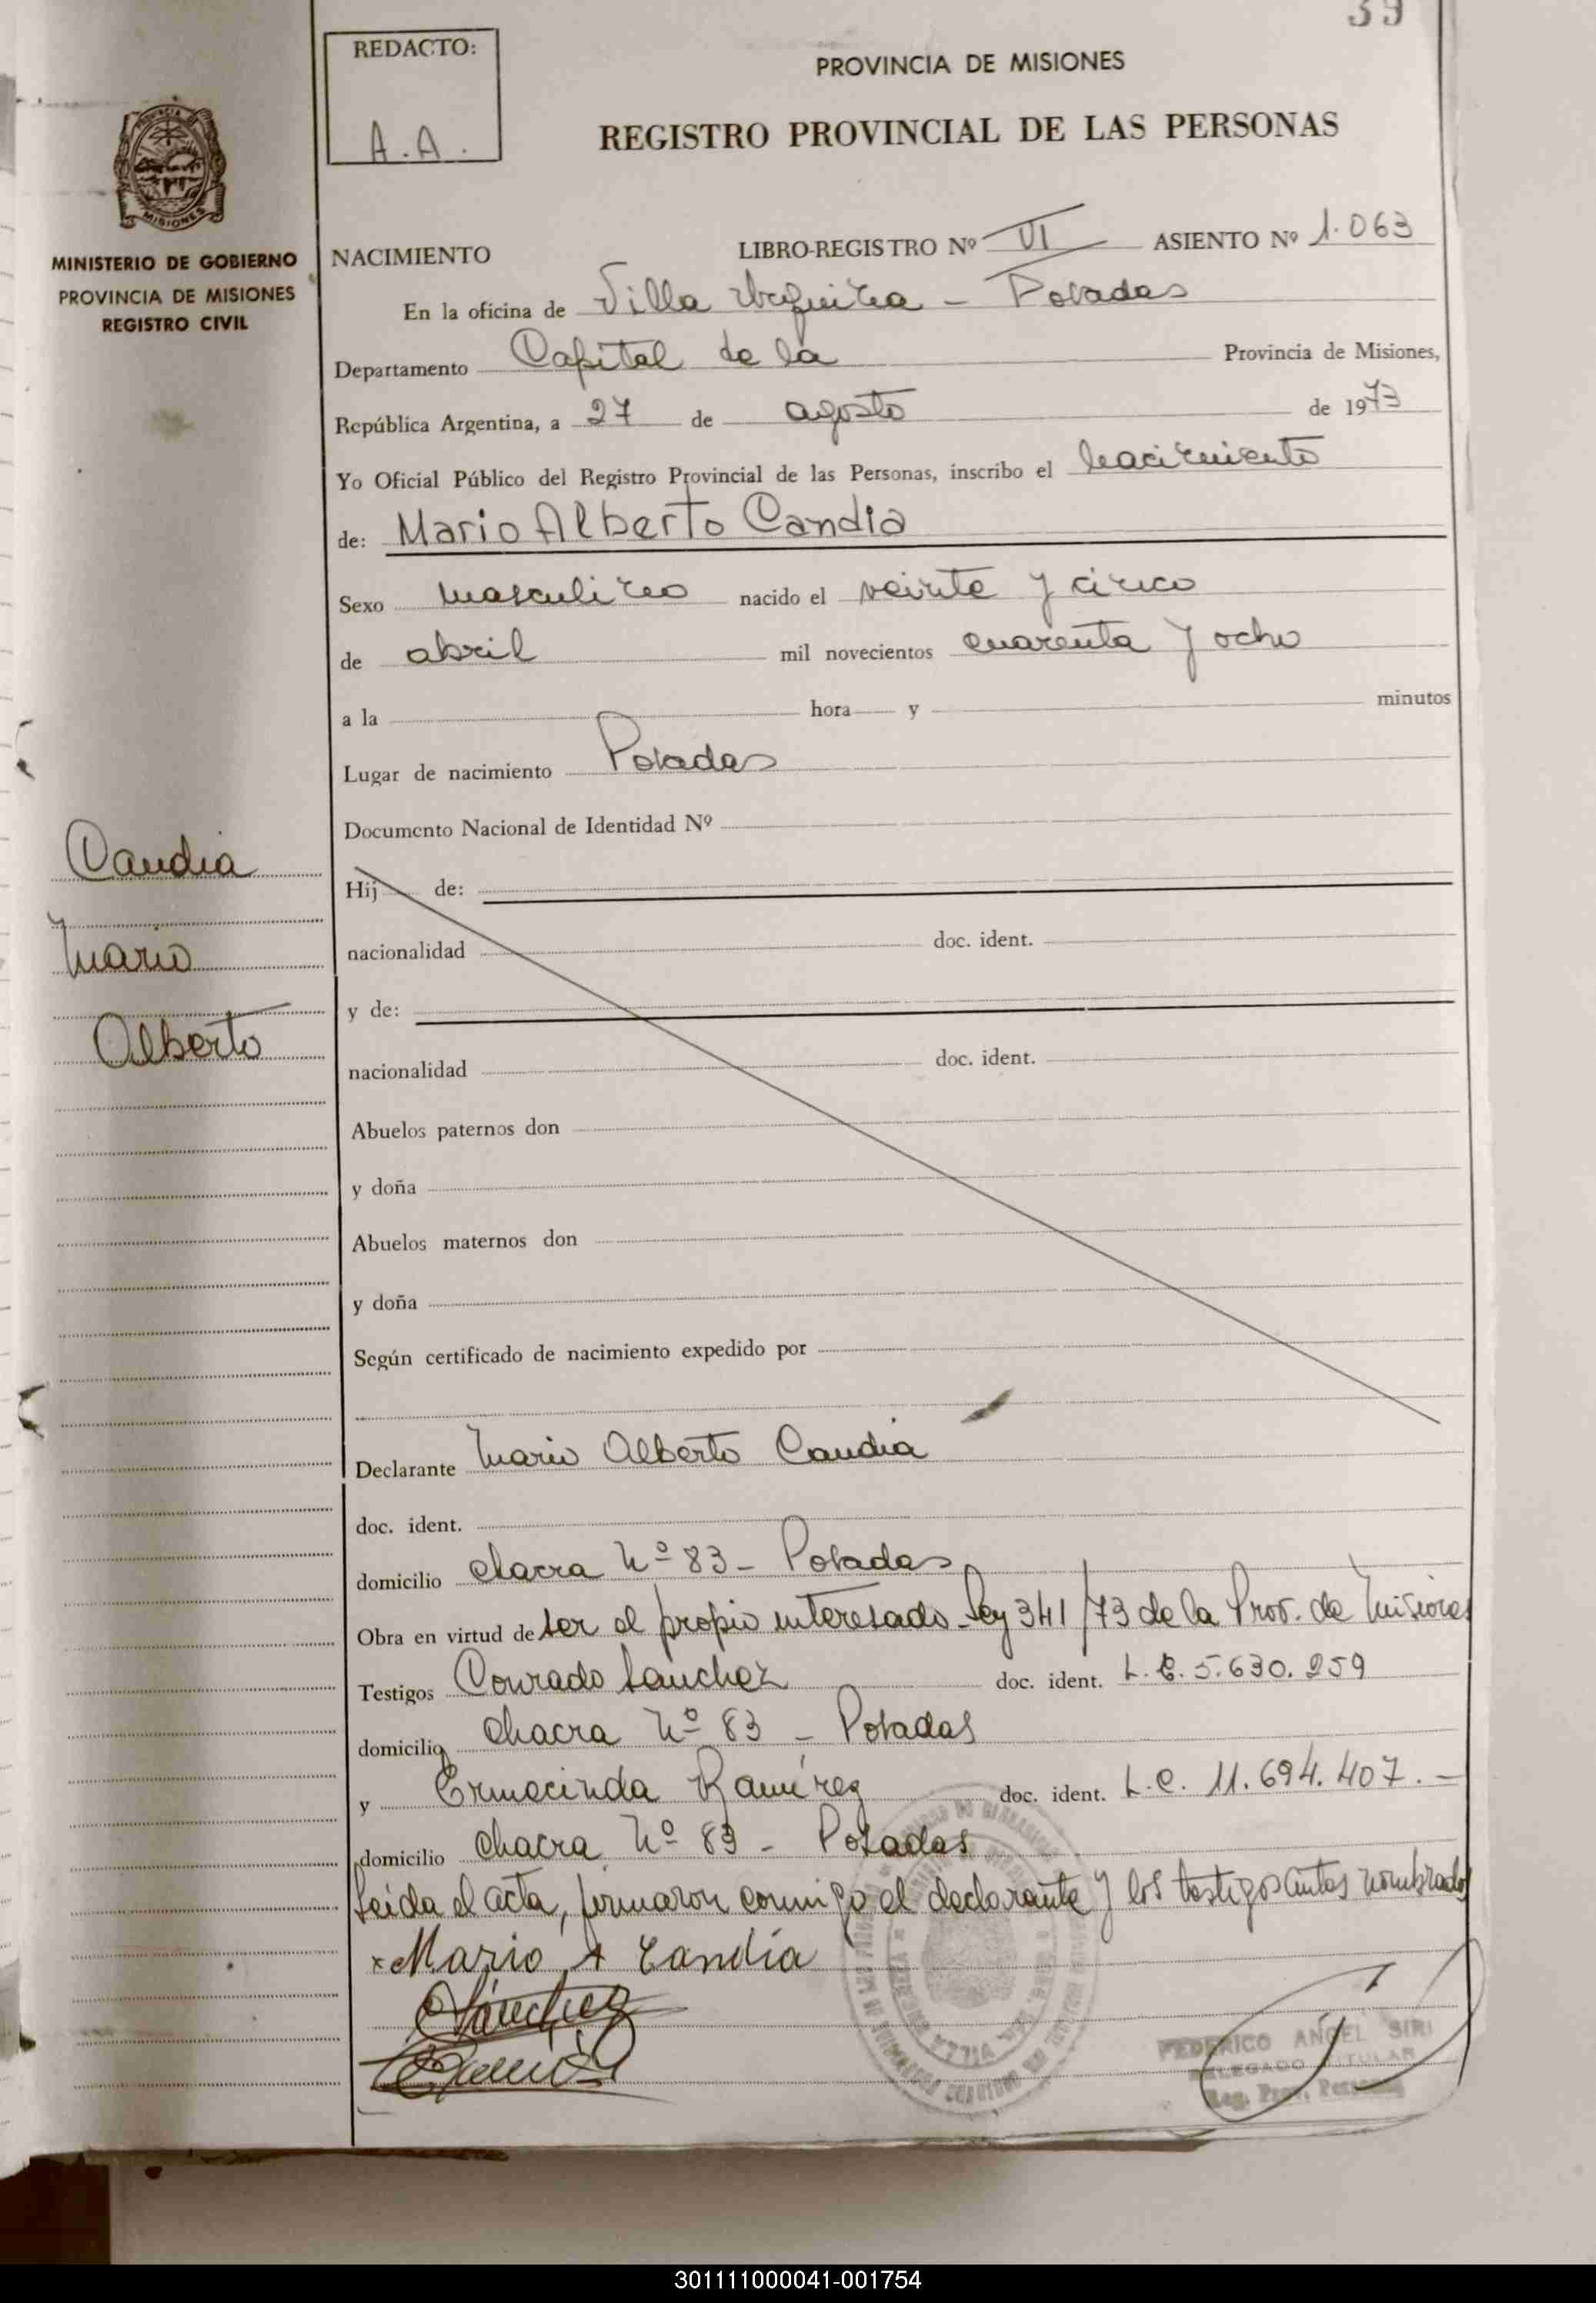 39
REDACTO:
A.A.
PROVINCIA DE MISIONES
REGISTRO PROVINCIAL DE LAS PERSONAS
MISIONES
MINISTERIO DE GOBIERNO
PROVINCIA DE MISIONES
REGISTRO CIVIL
NACIMIENTO LIBRO-REGISTRO Nº VI ASIENTO Nº 1.063
En la oficina de Villa Urquiza - Posadas
Departamento Capital de la Provincia de Misiones,
República Argentina, a 27 de agosto de 1973
Yo Oficial Público del Registro Provincial de las Personas, inscribo el nacimiento
de: Mario Alberto Candia
Sexo masculino nacido el veinte y cinco
de abril mil novecientos cuarenta y ocho
a la hora y minutos
Lugar de nacimiento Posadas
Documento Nacional de Identidad Nº
Candia
Mario
Alberto
Hij de:
nacionalidad doc. ident.
y de:
nacionalidad doc. ident.
Abuelos paternos don
y doña
Abuelos maternos don
y doña
Según certificado de nacimiento expedido por
Declarante Mario Alberto Candia
doc. ident.
domicilio chacra Nº 83 - Posadas
Obra en virtud de ser el propio interesado - Ley 341/73 de la Prov. de Misiones
Testigos Conrado Sanchez doc. ident. L.E. 5.630.259
domicilio chacra Nº 83 - Posadas
y Ermecinda Ramírez doc. ident. L.C. 11.694.407.-
domicilio chacra Nº 83 - Posadas
Leída el acta, firmaron conmigo el declarante y los testigos antes nombrados
x Mario A Candia
CSánchez
FEDERICO ANGEL SIRI
DELEGADO TITULAR
Reg. Prov. Personas
301111000041-001754